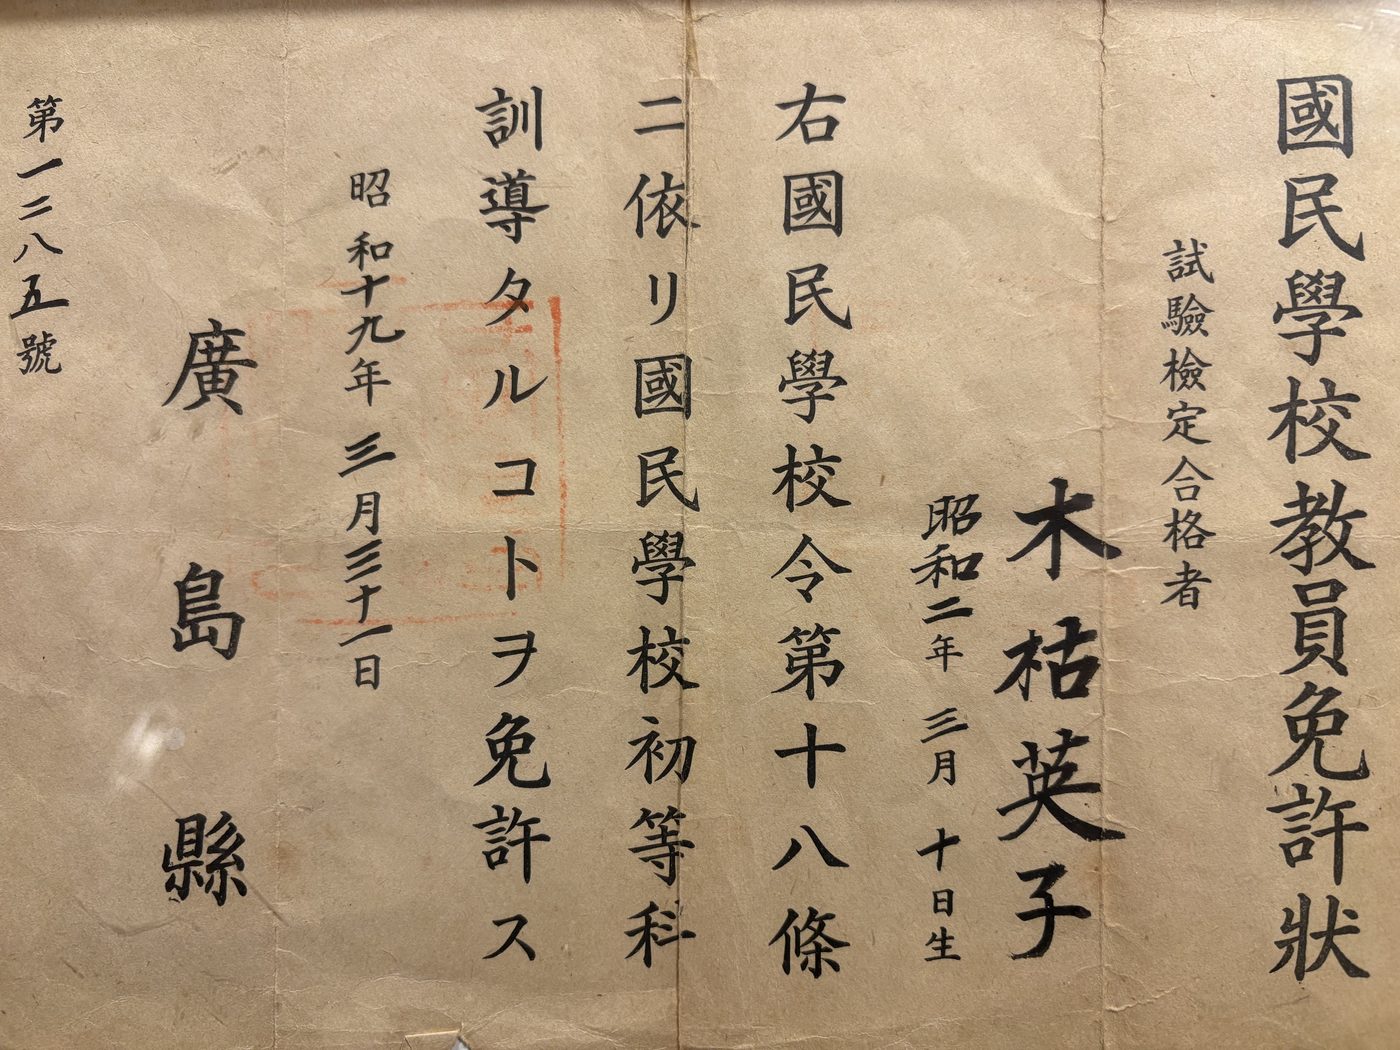 國民學校教員免許狀
試驗檢定合格者
木枯英子
昭和二年三月十日生
右國民學校令第十八條
ニ依リ國民學校初等科
訓導タルコトヲ免許ス
昭和十九年三月三十一日
廣島縣
第一二八五號